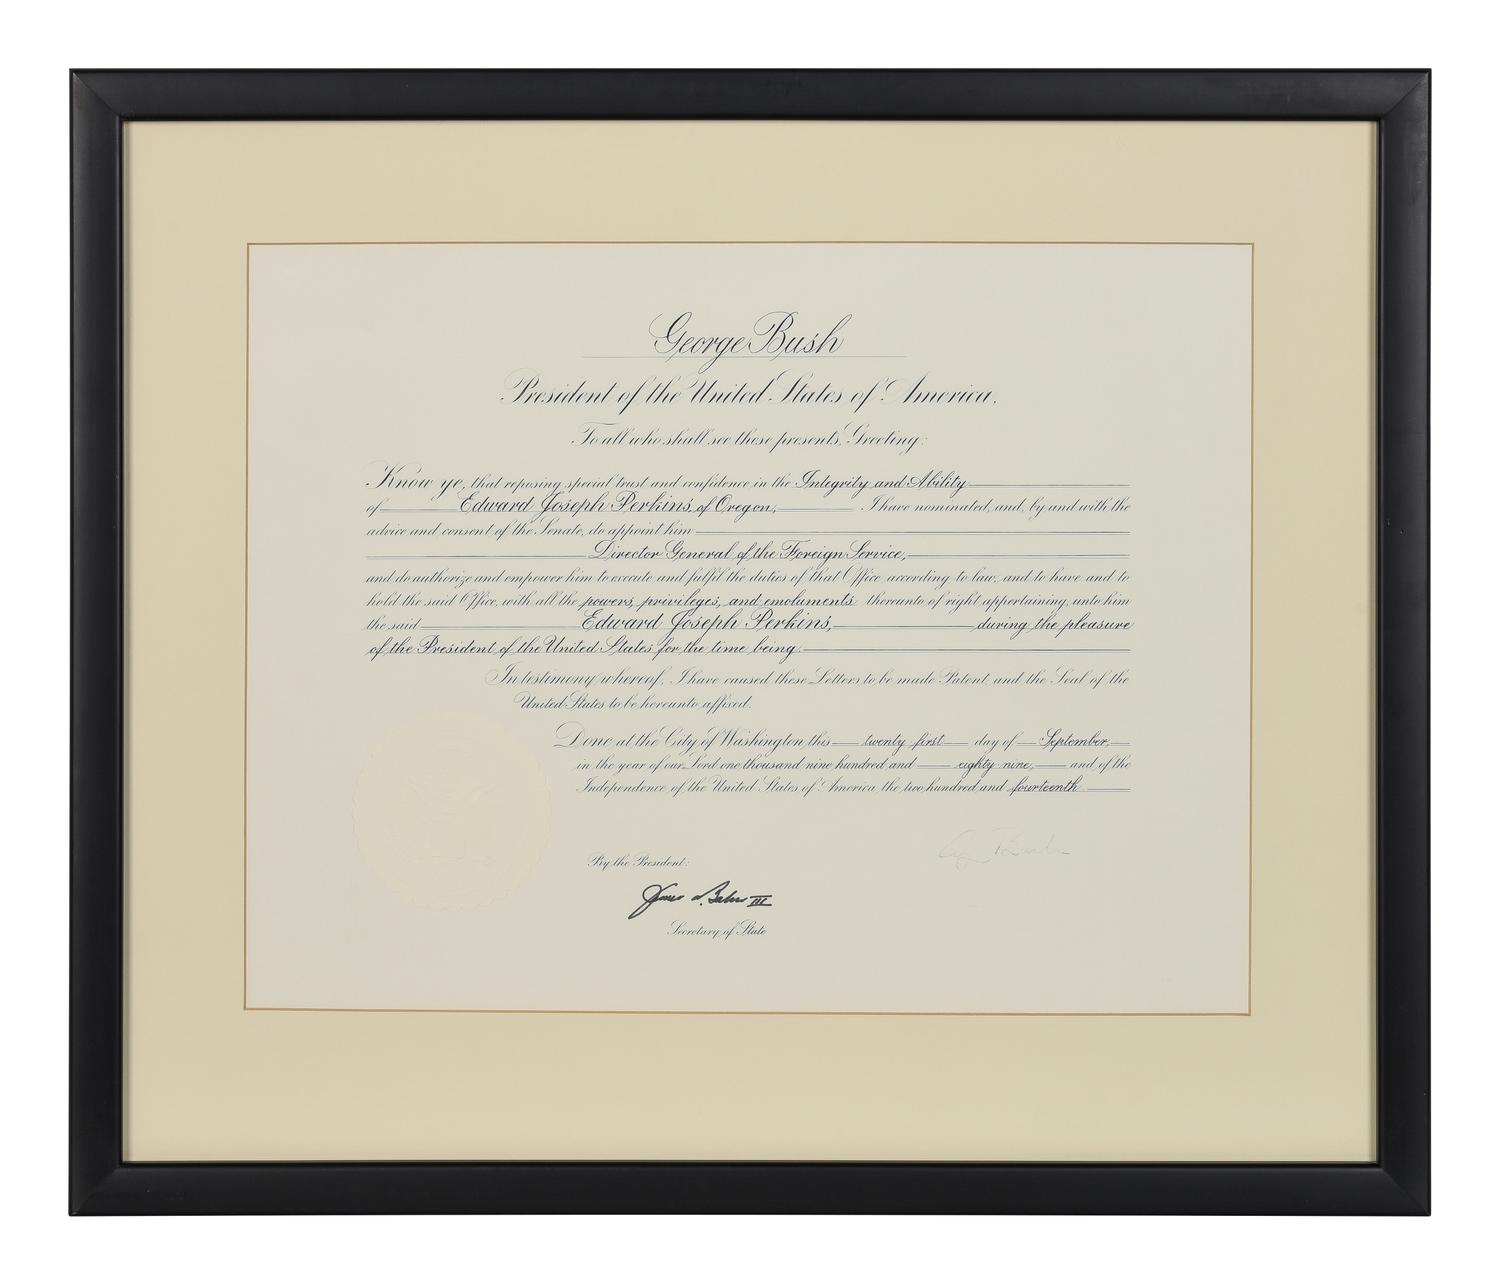 George Bush
President of the United States of America.
To all who shall see these presents, Greeting:
Know ye, that reposing special trust and confidence in the Integrity and Ability
of Edward Joseph Perkins, of Oregon, I have nominated, and, by and with the
advice and consent of the Senate, do appoint him
Director General of the Foreign Service,
and do authorize and empower him to execute and fulfil the duties of that Office according to law, and to have and to
hold the said Office, with all the powers, privileges, and emoluments thereunto of right appertaining, unto him
the said Edward Joseph Perkins, during the pleasure
of the President of the United States for the time being.
In testimony whereof, I have caused these Letters to be made Patent, and the Seal of the
United States to be hereunto affixed.
Done at the City of Washington this twenty first day of September,
in the year of our Lord one thousand nine hundred and eighty nine, and of the
Independence of the United States of America the two hundred and fourteenth
G Bush
By the President:
James A. Baker III
Secretary of State